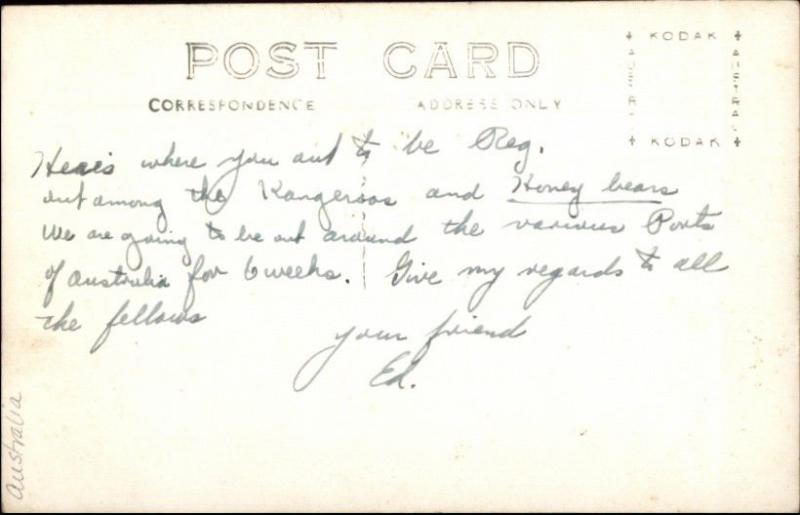 POST CARD
CORRESPONDENCE ADDRESS ONLY
KODAK
AUSTRAL
AUSTRAL
KODAK
Here's where you aut to be Reg.
out among the Kangeroos and Honey bears
We are going to be out around the various Ports
of Australia for 6 weeks. Give my regards to all
the fellows
your friend
Ed.
Australia